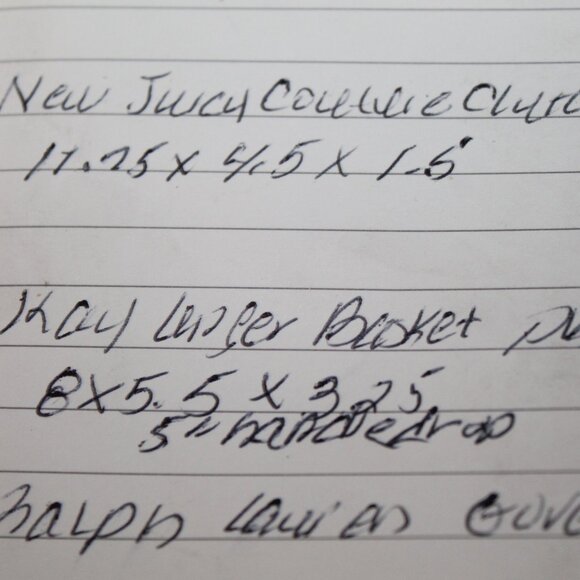 New Juicy Couture Clutc
11.75 x 4.5 x 1.5
Kay Unger Basket pu
8 x 5.5 x 3.25
5" handle drop
Ralph Lauren